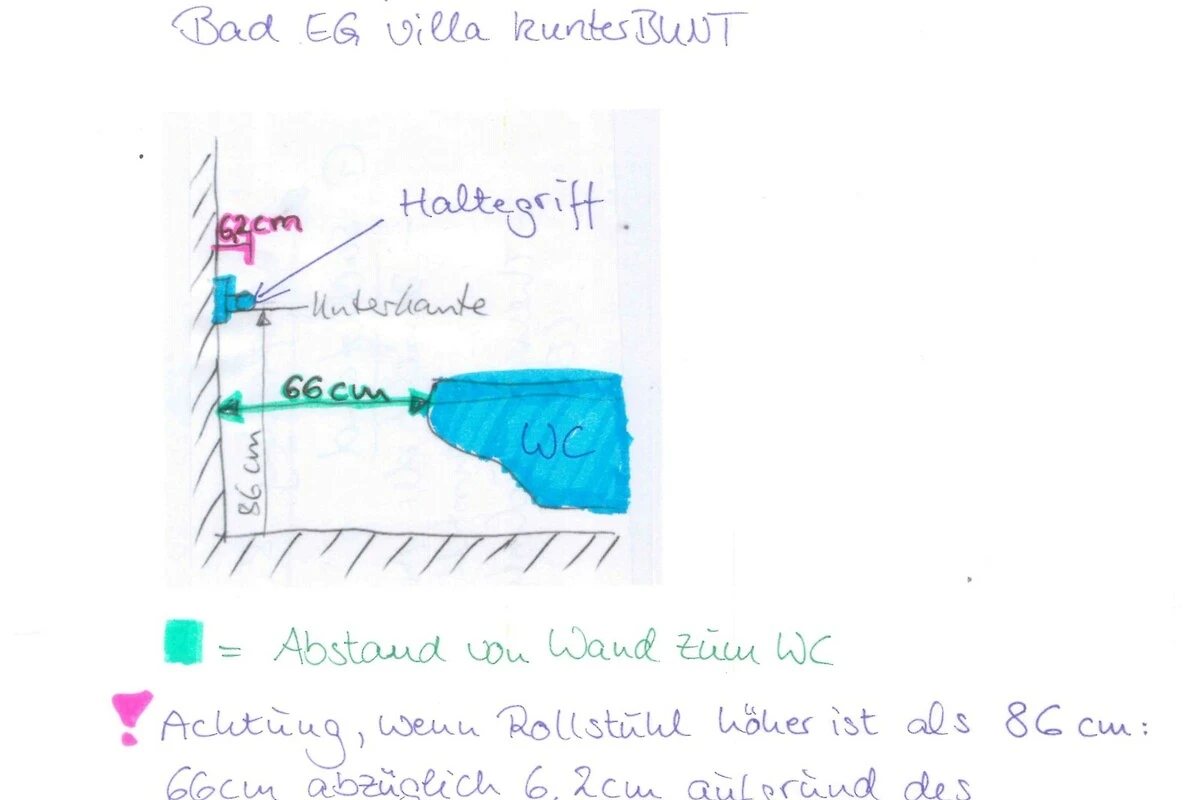 Bad EG Villa KunterBUNT
6,2cm
Haltegriff
Unterkante
66 cm
86 cm
WC
= Abstand von Wand zum WC
! Achtung, wenn Rollstuhl höher ist als 86 cm:
66cm abzüglich 6,2cm aufgrund des